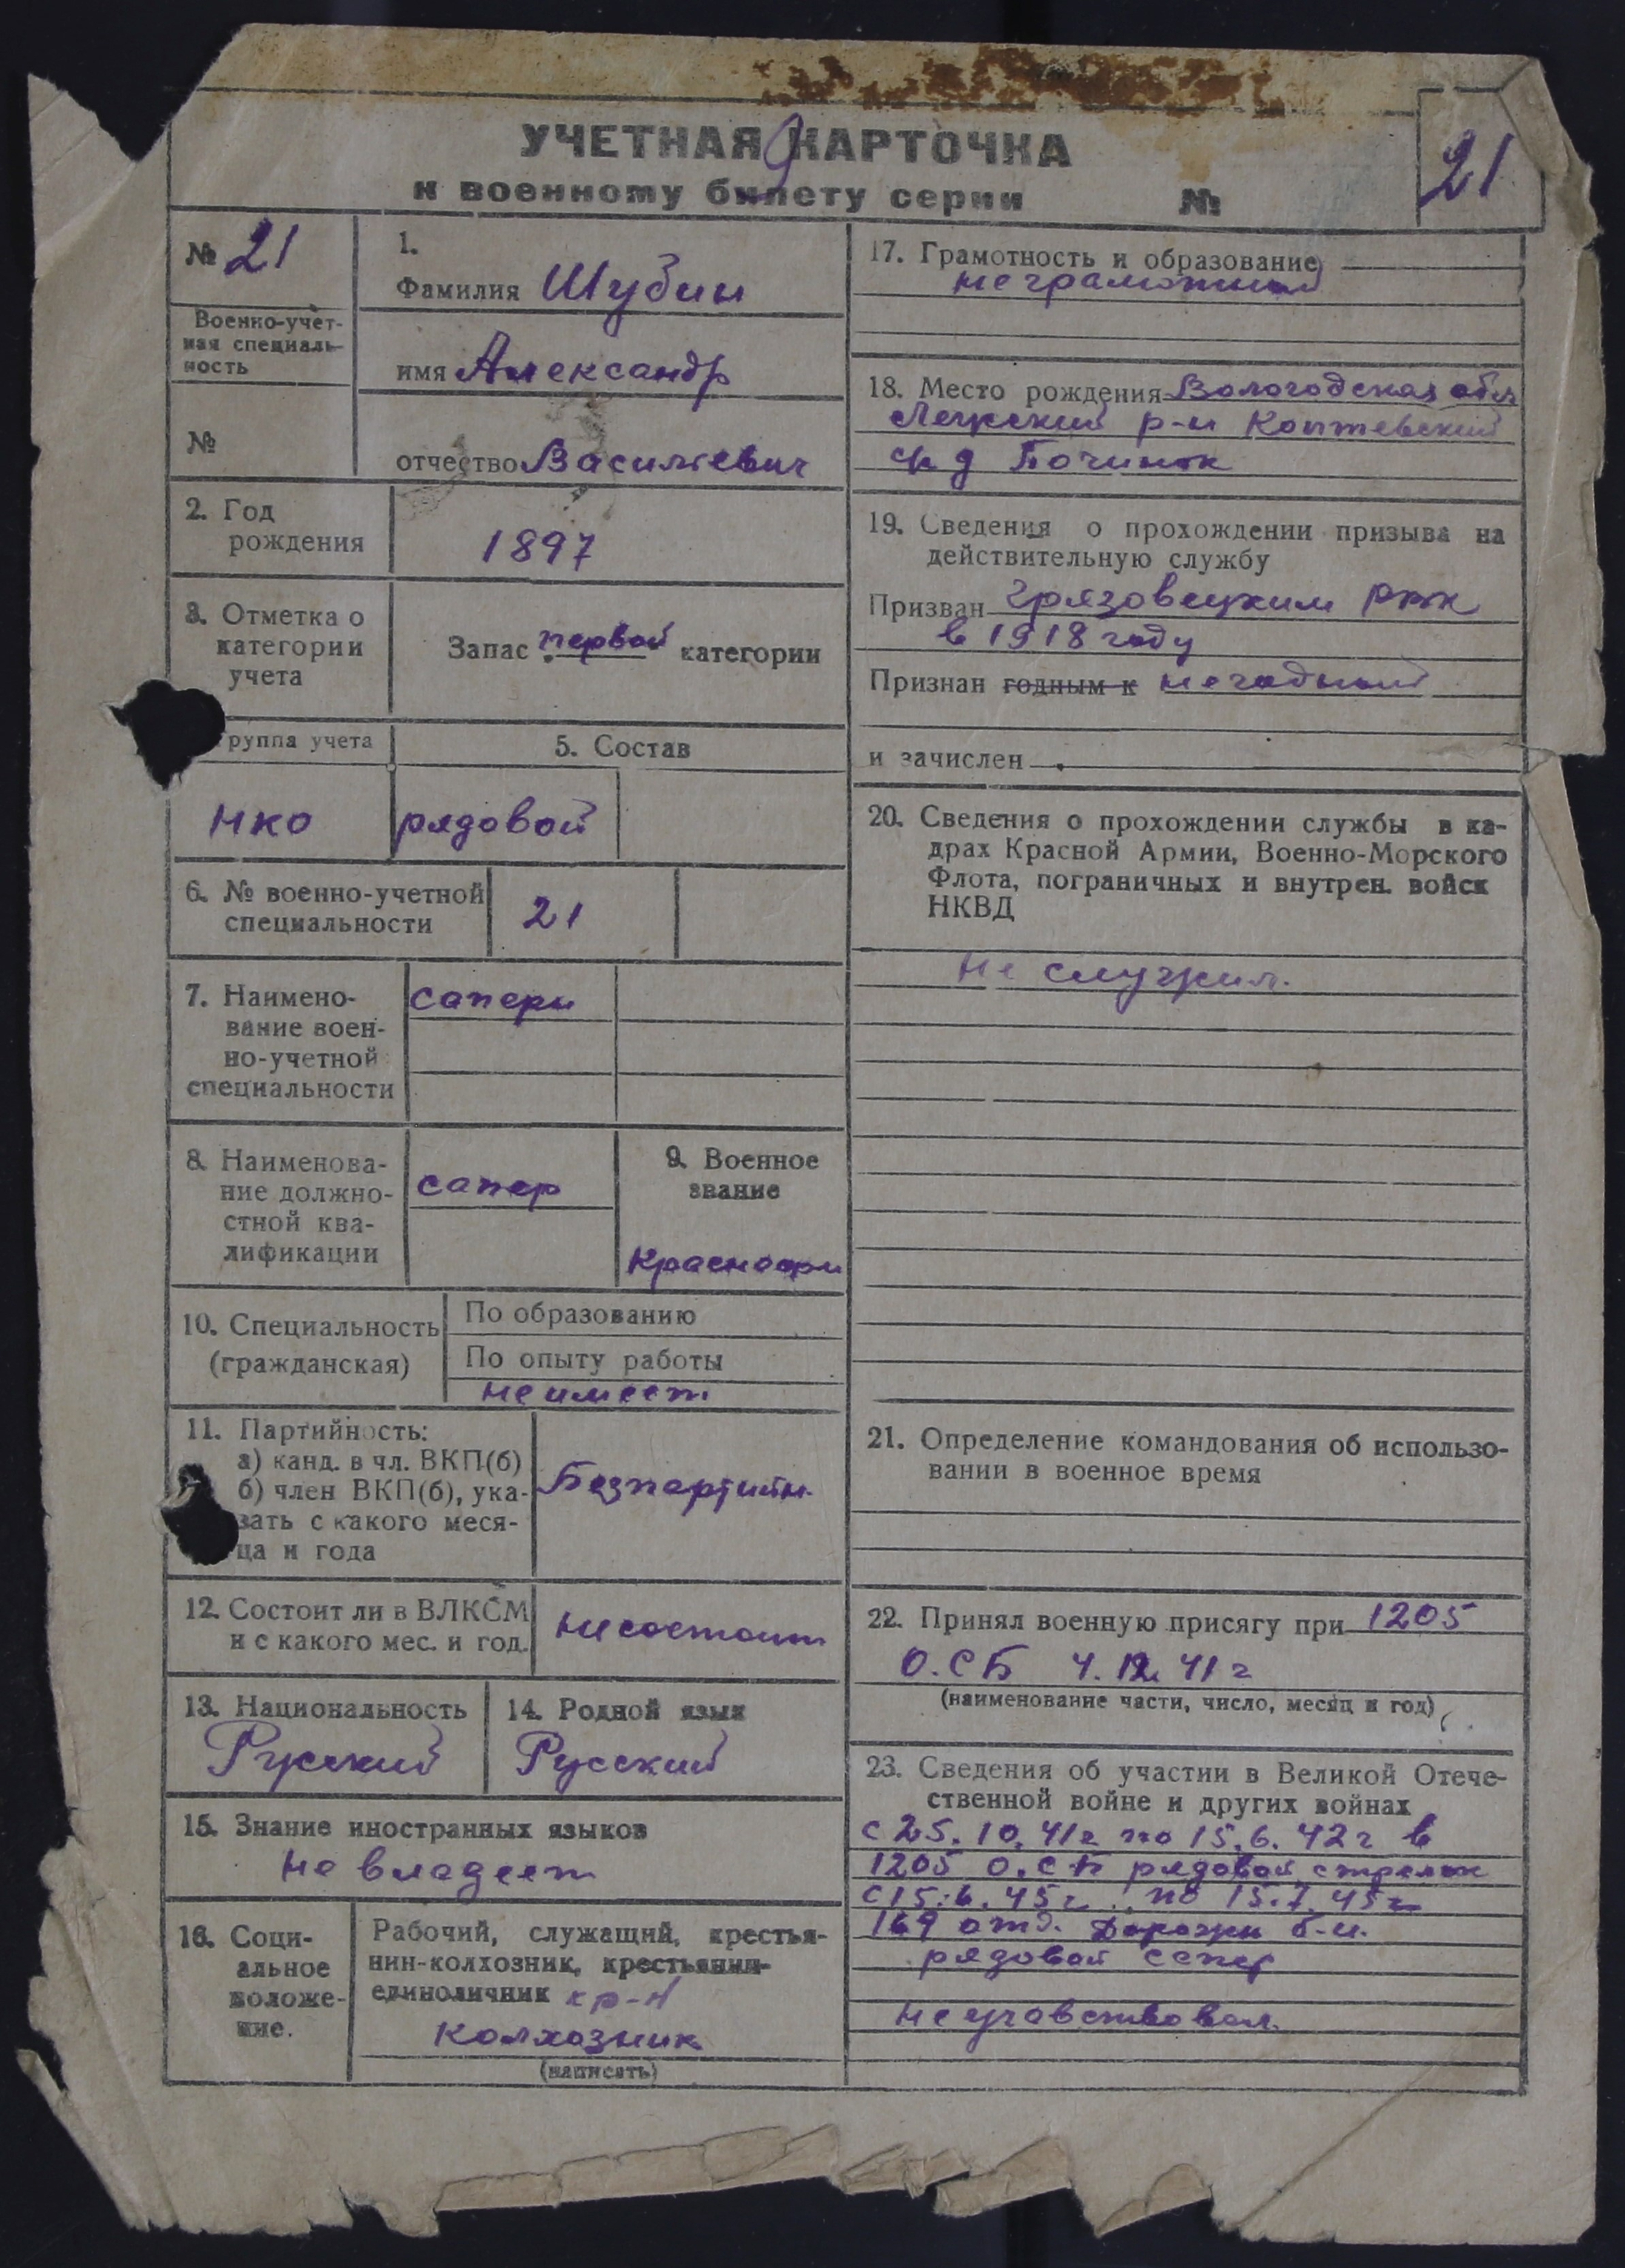 УЧЕТНАЯ КАРТОЧКА
к военному билету серии №
21
№ 21
Военно-учет-
ная специаль-
ность
№
1.
Фамилия Шубин
имя Александр
отчество Васильевич
2. Год
рождения
1897
3. Отметка о
категории
учета
Запас первой категории
группа учета
НКО
5. Состав
рядовой
6. № военно-учетной
специальности
21
7. Наимено-
вание воен-
но-учетной
специальности
саперы
8. Наименова-
ние должно-
стной ква-
лификации
сапер
9. Военное
звание
Красноарм
10. Специальность
(гражданская)
По образованию
По опыту работы
не имеет
11. Партийность:
а) канд. в чл. ВКП(б)
б) член ВКП(б), ука-
зать с какого меся-
ца и года
Безпартийн.
12. Состоит ли в ВЛКСМ
и с какого мес. и год.
не состоит
13. Национальность
Русский
14. Родной язык
Русский
15. Знание иностранных языков
не владеет
16. Соци-
альное
положе-
ние.
Рабочий, служащий, крестья-
нин-колхозник, крестьянин-
единоличник кр-н
колхозник
(написать)
17. Грамотность и образование
неграмотный
18. Место рождения Вологодская обл
Лежский р-н Коптевский
с/с д Починок
19. Сведения о прохождении призыва на
действительную службу
Призван Грязовецким РВК
в 1918 году
Признан годным к негодный
и зачислен
20. Сведения о прохождении службы в ка-
драх Красной Армии, Военно-Морского
Флота, пограничных и внутрен. войск
НКВД
Не служил.
21. Определение командования об использо-
вании в военное время
22. Принял военную присягу при 1205
О.СБ 4.12.41 г
(наименование части, число, месяц и год)
23. Сведения об участии в Великой Отече-
ственной войне и других войнах
с 25.10.41г по 15.6.42г в
1205 О.СБ рядовой стрелок
с 15.6.45г. по 15.7.45г
169 отд. Дорожн б-н.
рядовой сапер
не учавствовал.